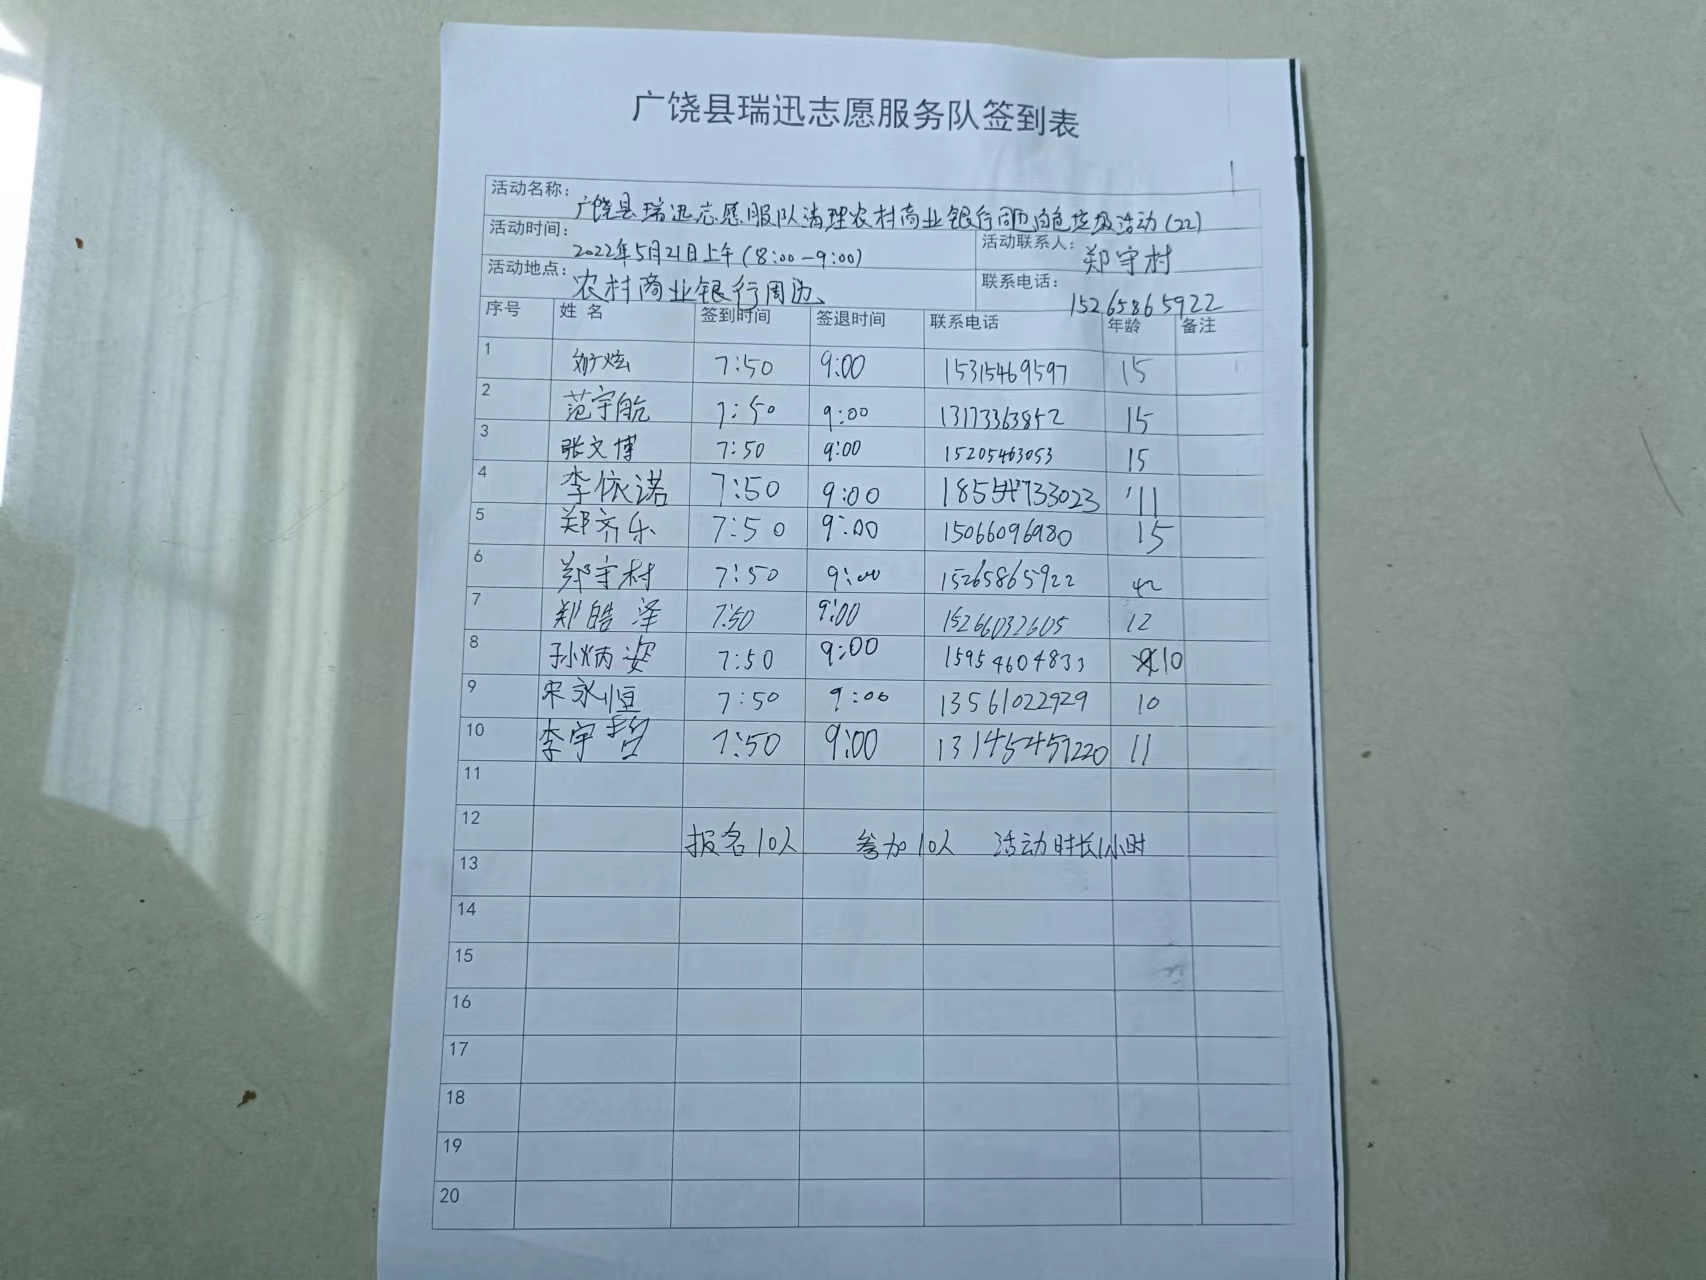 广饶县瑞迅志愿服务队签到表
活动名称: 广饶县瑞迅志愿服务队清理农村商业银行周边白色垃圾活动(22)
活动时间: 2022年5月21日上午(8:00-9:00) 活动联系人: 郑守村
活动地点: 农村商业银行周边 联系电话: 15265865922
序号 姓名 签到时间 签退时间 联系电话 年龄 备注
1 7:50 9:00 15315469597 15
2 范宇航 7:50 9:00 13173363852 15
3 张文博 7:50 9:00 15205463053 15
4 李依诺 7:50 9:00 11
5 郑齐乐 7:50 9:00 15066096980 15
6 郑守村 7:50 9:00 15265865922 42
7 郑皓泽 7:50 9:00 15266032605 12
8 孙炳姿 7:50 9:00 15954604833 10
9 宋永恒 7:50 9:00 13561022929 10
10 李宇哲 7:50 9:00 11
11
12
报名10人 参加10人 活动时长1小时
13
14
15
16
17
18
19
20